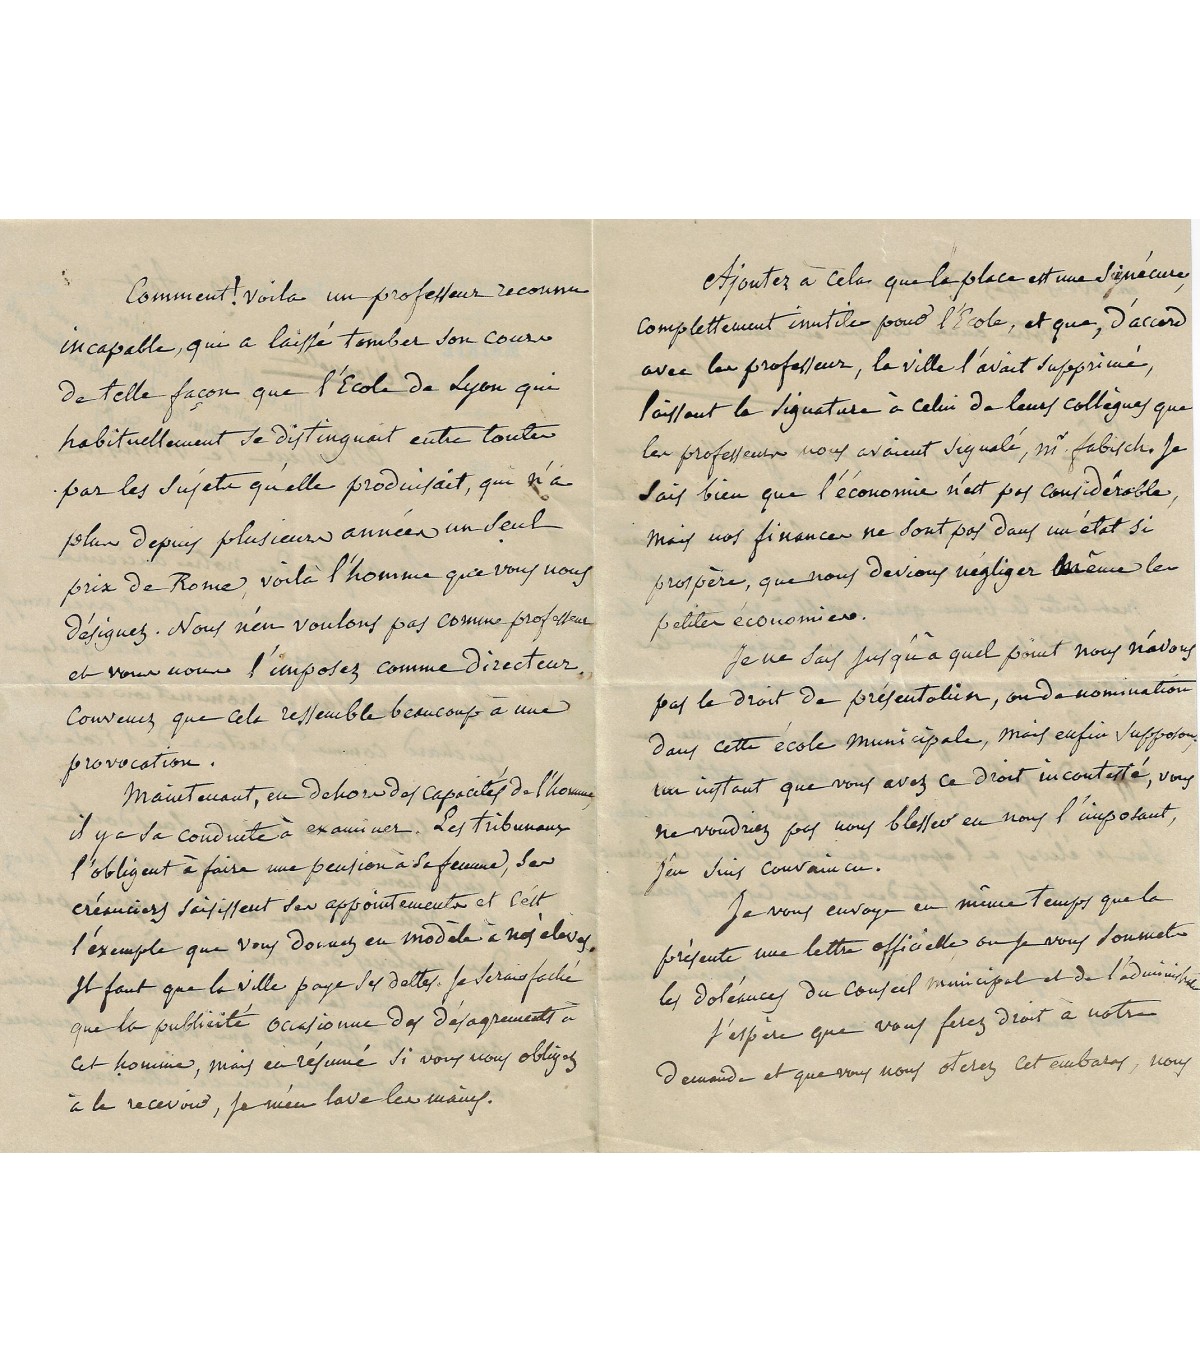 Comment! voila un professeur reconnu
incapable, qui a laissé tomber son cours
de telle façon que l'Ecole de Lyon qui
habituellement se distinguait entre toutes
par les sujets qu'elle produisait, qui n'a
plus depuis plusieurs années un seul
prix de Rome, voilà l'homme que vous nous
désignez. Nous n'en voulons pas comme professeur
et vous nous l'imposez comme directeur.
Convenez que cela ressemble beaucoup à une
provocation.
Maintenant, en dehors des capacités de l'homme,
il y a sa conduite à examiner. Les tribunaux
l'obligent à faire une pension à sa femme, ses
créanciers saisissent ses appointements et c'est
l'exemple que vous donnez en modèle à nos élèves.
Il faut que la ville paye ses dettes. Je serais faché
que la publicité occasionne des désagrements à
cet homme, mais en résumé si vous nous obligez
à le recevoir, je m'en lave les mains.
Ajoutez à cela que la place est une sinécure,
complettement inutile pour l'Ecole, et que, d'accord
avec les professeurs, la ville l'avait supprimé,
laissant la signature à celui de leurs collègues que
les professeurs nous avaient signalé, Mr. fabisch. Je
sais bien que l'économie n'est pas considérable,
mais nos finances ne sont pas dans un état si
prospère, que nous devions négliger même les
petites économies.
Je ne sais jusqu'à quel point nous n'avons
pas le droit de présentation, ou de nomination
dans cette école municipale, mais enfin supposons
un instant que vous avez ce droit incontesté, vous
ne voudriez pas nous blesser en nous l'imposant,
j'en suis convaincu.
Je vous envoye en même temps que la
présente une lettre officielle où je vous soumets
les doléances du Conseil municipal et de l'administ
J'espère que vous ferez droit à notre
demande et que vous nous oterez cet embaras, nous